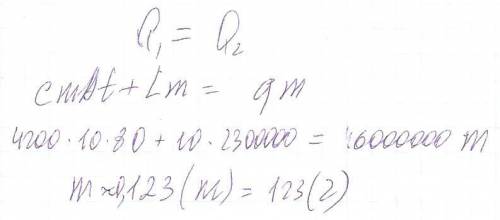 Q₁ = Q₂
cmΔt + Lm = qm
4200·10·80 + 10·2300000 = 46000000 m
m ≈ 0,123 (м) = 123 (г)